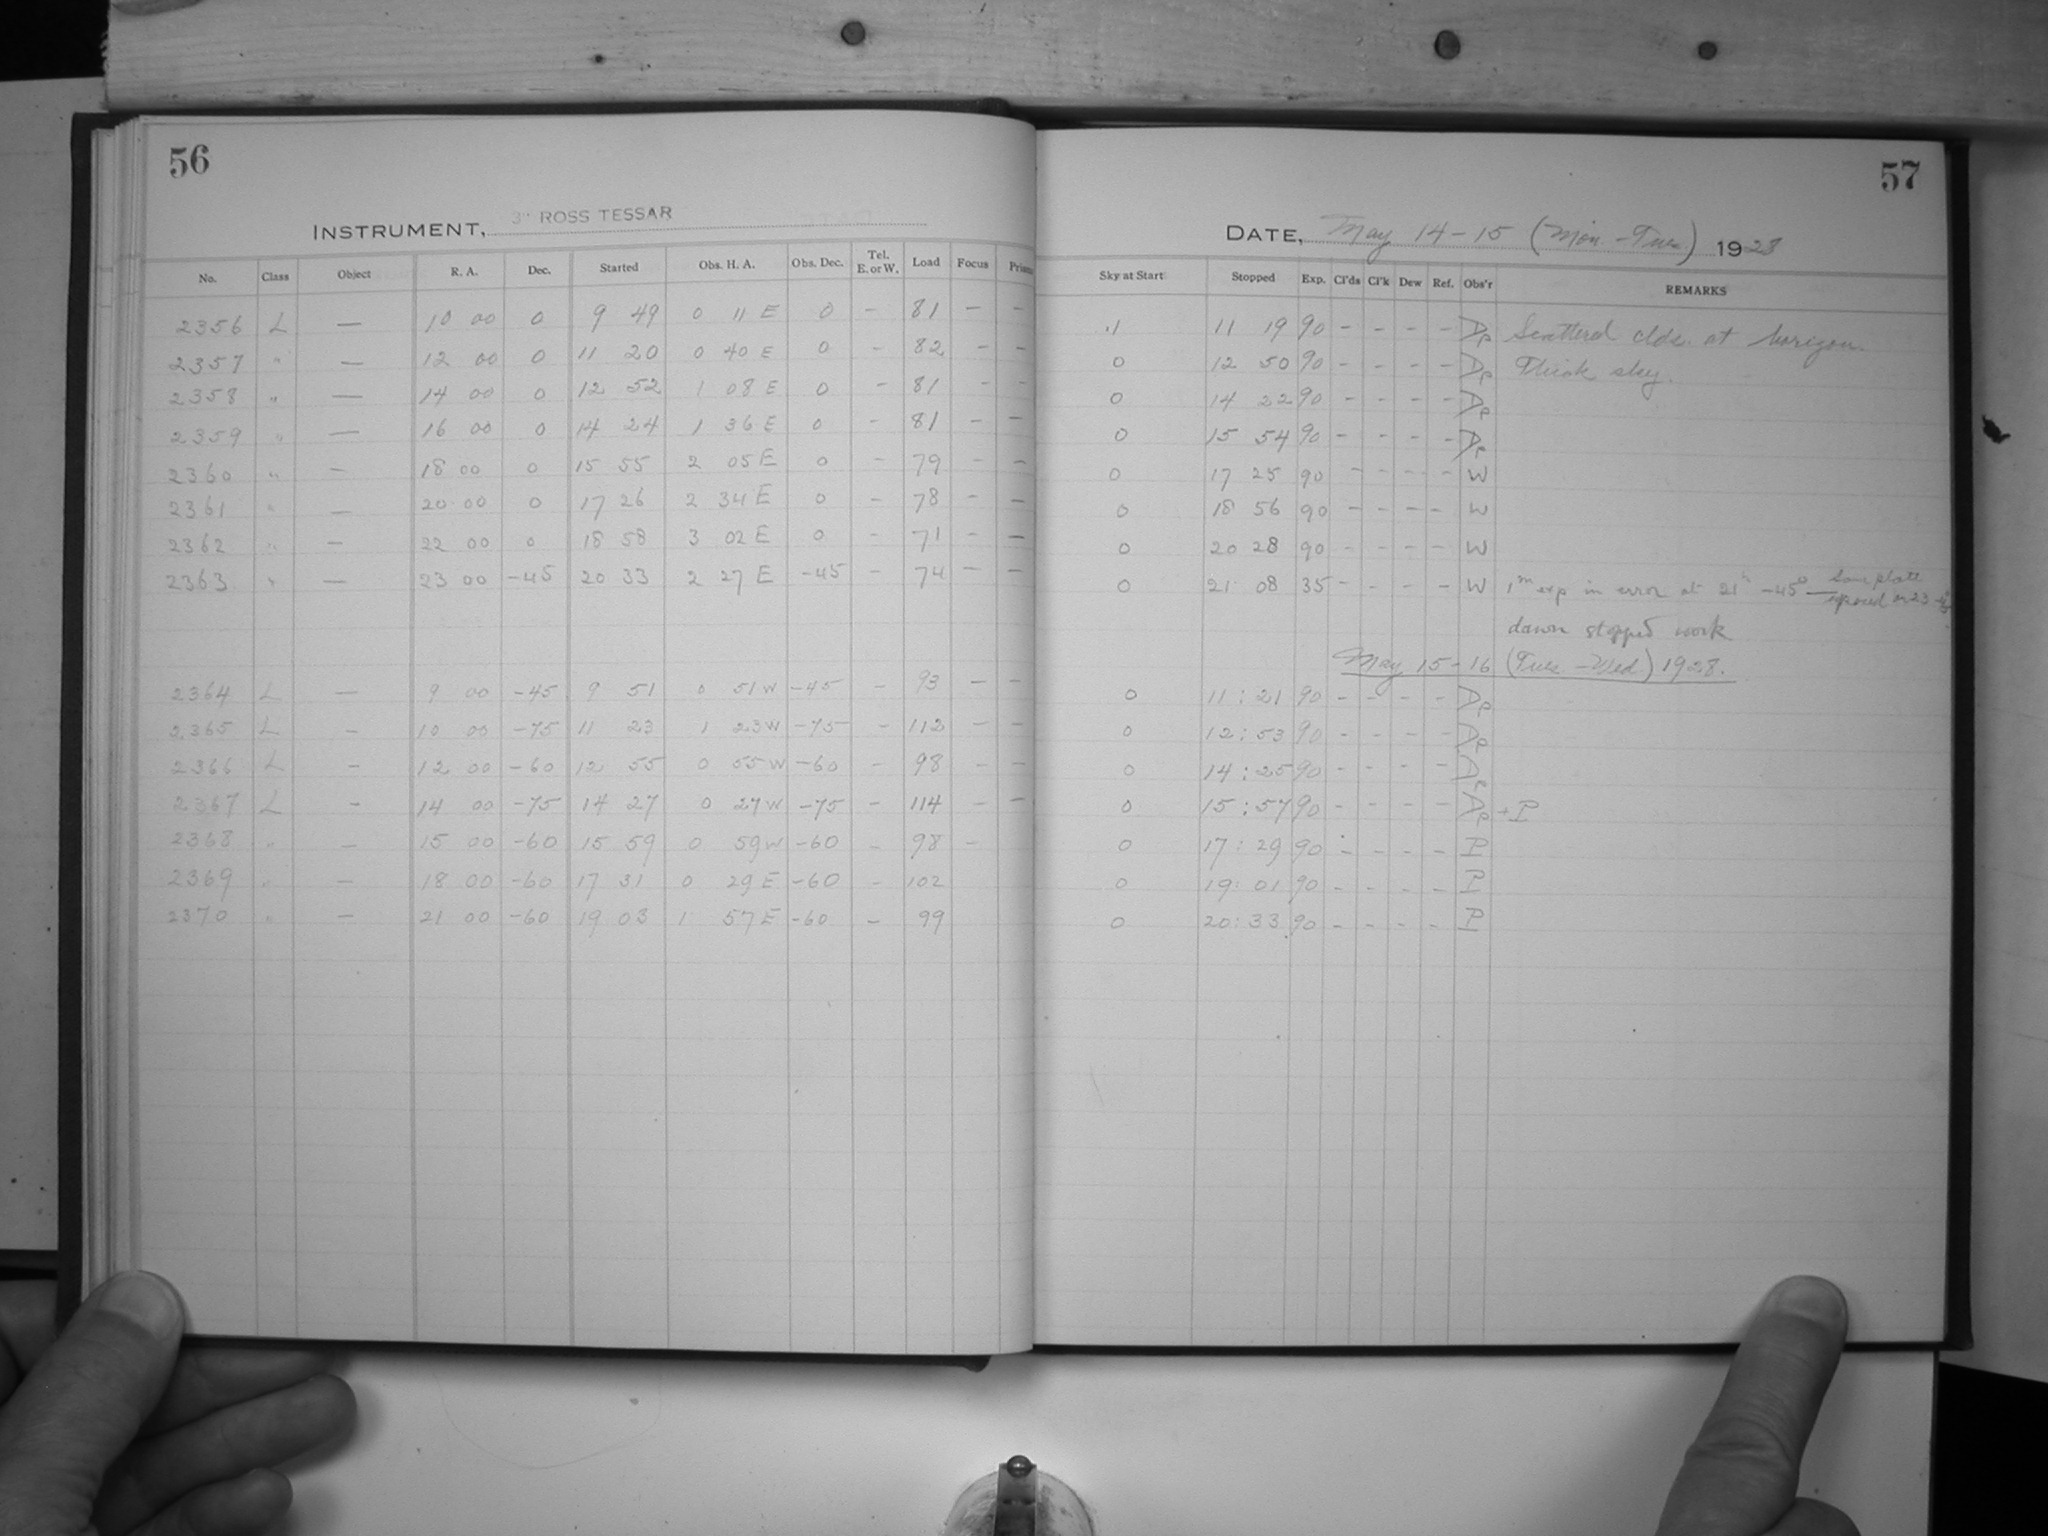 56
INSTRUMENT, 3" ROSS TESSAR
No. Class Object R. A. Dec. Started Obs. H. A. Obs. Dec. Tel. E. or W. Load Focus Prism
2356 L — 10 00 0 9 49 0 11 E 0 - 81 - -
2357 " — 12 00 0 11 20 0 40 E 0 - 82 - -
2358 " — 14 00 0 12 52 1 08 E 0 - 81 - -
2359 " — 16 00 0 14 24 1 36 E 0 - 81 - -
2360 " — 18 00 0 15 55 2 05 E 0 - 79 - -
2361 " — 20 00 0 17 26 2 34 E 0 - 78 - -
2362 " — 22 00 0 18 58 3 02 E 0 - 71 - -
2363 " — 23 00 -45 20 33 2 27 E -45 - 74 - -
2364 L — 9 00 -45 9 51 0 51 W -45 - 93 - -
2365 L - 10 00 -75 11 23 1 23 W -75 - 112 - -
2366 L - 12 00 -60 12 55 0 55 W -60 - 98 - -
2367 L - 14 00 -75 14 27 0 27 W -75 - 114 - -
2368 " — 15 00 -60 15 59 0 59 W -60 - 98 -
2369 " — 18 00 -60 17 31 0 29 E -60 - 102
2370 " — 21 00 -60 19 03 1 57 E -60 - 99
57
DATE, May 14-15 (Mon.-Tues.) 1928
Sky at Start Stopped Exp. Cl'ds Cl'k Dew Ref. Obs'r REMARKS
.1 11 19 90 - - - - Scattered clds. at horizon.
0 12 50 90 - - - - Thick sky.
0 14 22 90 - - - -
0 15 54 90 - - - -
0 17 25 90 - - - - W
0 18 56 90 - - - - W
0 20 28 90 - - - - W
0 21 08 35 - - - - W 1m exp in error at 21h -45° — Same plate exposed at 23 -45°
dawn stopped work
May 15-16 (Tues.-Wed) 1928.
0 11:21 90 - - - -
0 12:53 90 - - - -
0 14:25 90 - - - -
0 15:57 90 - - - - + P
0 17:29 90 - - - - P
0 19:01 90 - - - - P
0 20:33 90 - - - - P